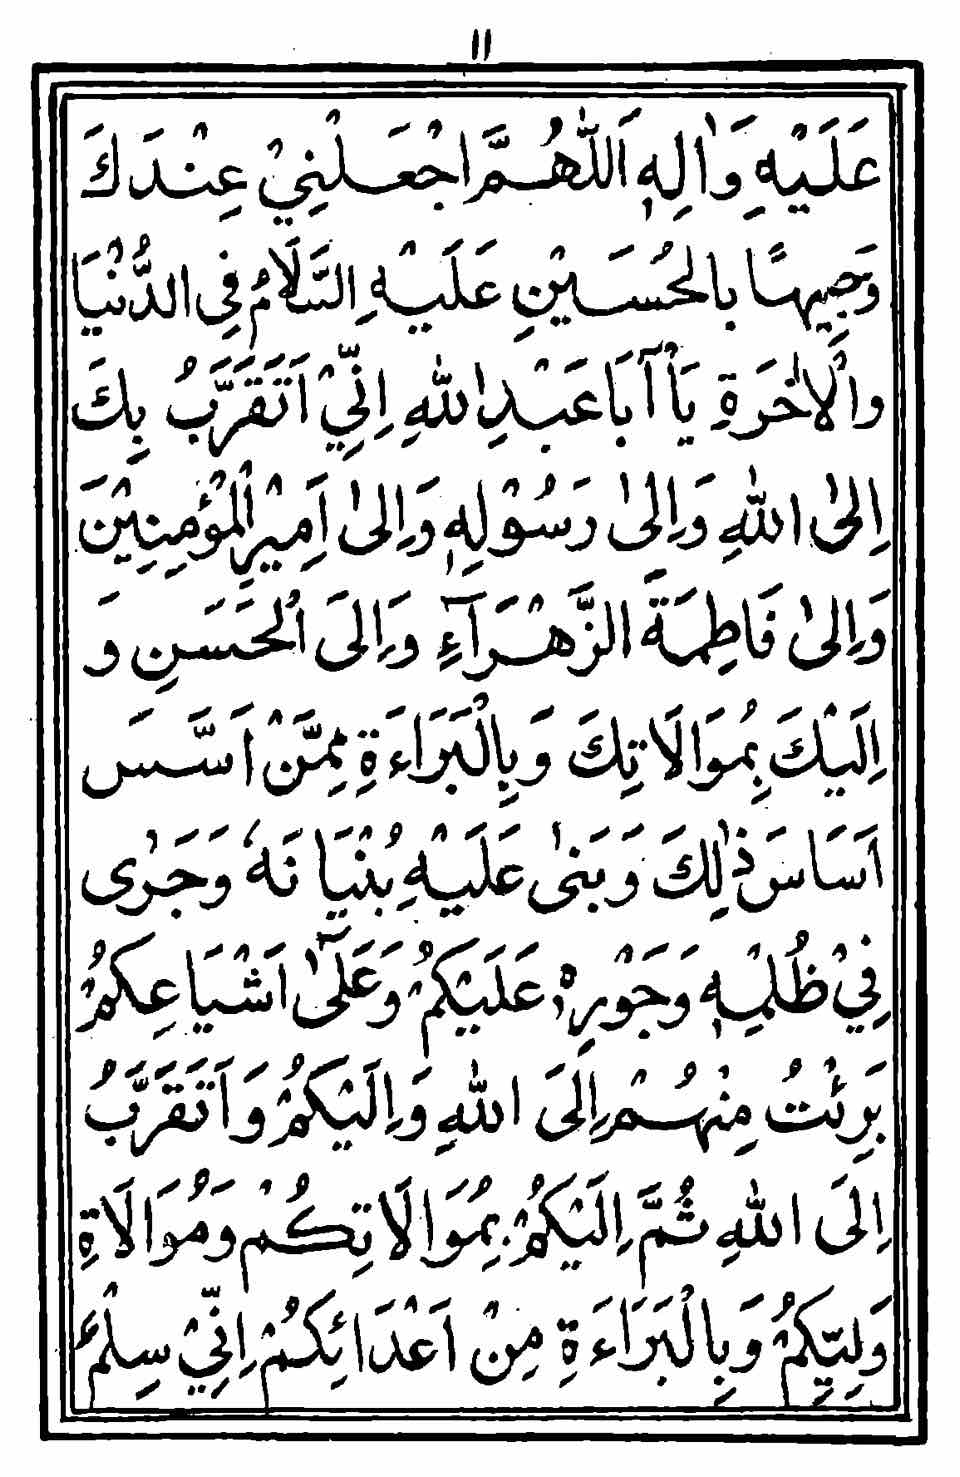 ١١
عَلَيْهِ وَاٰلِهٖ اَللّٰهُمَّ اجْعَلْنِيْ عِنْدَكَ
وَجِيْهًا بِالْحُسَيْنِ عَلَيْهِ السَّلَامُ فِي الدُّنْيَا
وَالْاٰخِرَةِ يَآ اَبَا عَبْدِ اللّٰهِ اِنِّيْ اَتَقَرَّبُ بِكَ
اِلىٰ اللّٰهِ وَاِلىٰ رَسُوْلِهٖ وَاِلىٰ اَمِيْرِ الْمُؤْمِنِيْنَ
وَاِلىٰ فَاطِمَةَ الزَّهْرَآءِ وَاِلىَ الْحَسَنِ وَ
اِلَيْكَ بِمُوَالَاتِكَ وَبِالْبَرَاءَةِ مِمَّنْ اَسَّسَ
اَسَاسَ ذٰلِكَ وَبَنىٰ عَلَيْهِ بُنْيَانَهٗ وَجَرٰى
فِيْ ظُلْمِهٖ وَجَوْرِهٖ عَلَيْكُمْ وَعَلىٰٓ اَشْيَاعِكُمْ
بَرِئْتُ مِنْهُمْ اِلىَ اللّٰهِ وَاِلَيْكُمْ وَاَتَقَرَّبُ
اِلىَ اللّٰهِ ثُمَّ اِلَيْكُمْ بِمُوَالَاتِكُمْ وَمُوَالَاةِ
وَلِيِّكُمْ وَبِالْبَرَاءَةِ مِنْ اَعْدَائِكُمْ اِنِّيْ سِلْمٌ